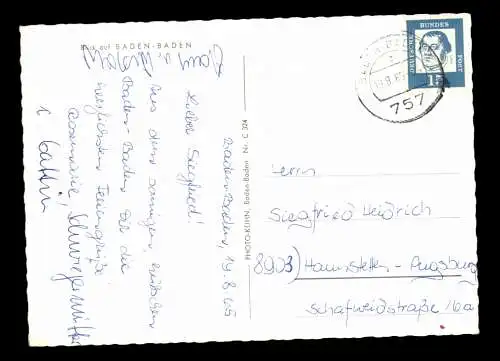 Blick auf BADEN-BADEN
Baden-Baden, 19.8.65
Lieber Siegfried!
Aus dem sonnigen
Baden-Baden Dir die
herzlichsten Feriengrüße
Rosemarie, Schwiegermutter
u.
PHOTO-KÜHN, Baden-Baden Nr. C 324
DEUTSCHE BUNDES POST
15
BADEN-BADEN
757
Herrn
Siegfried Heidrich
8903) Haunstetten-Augsburg
Schafweidstraße 16a